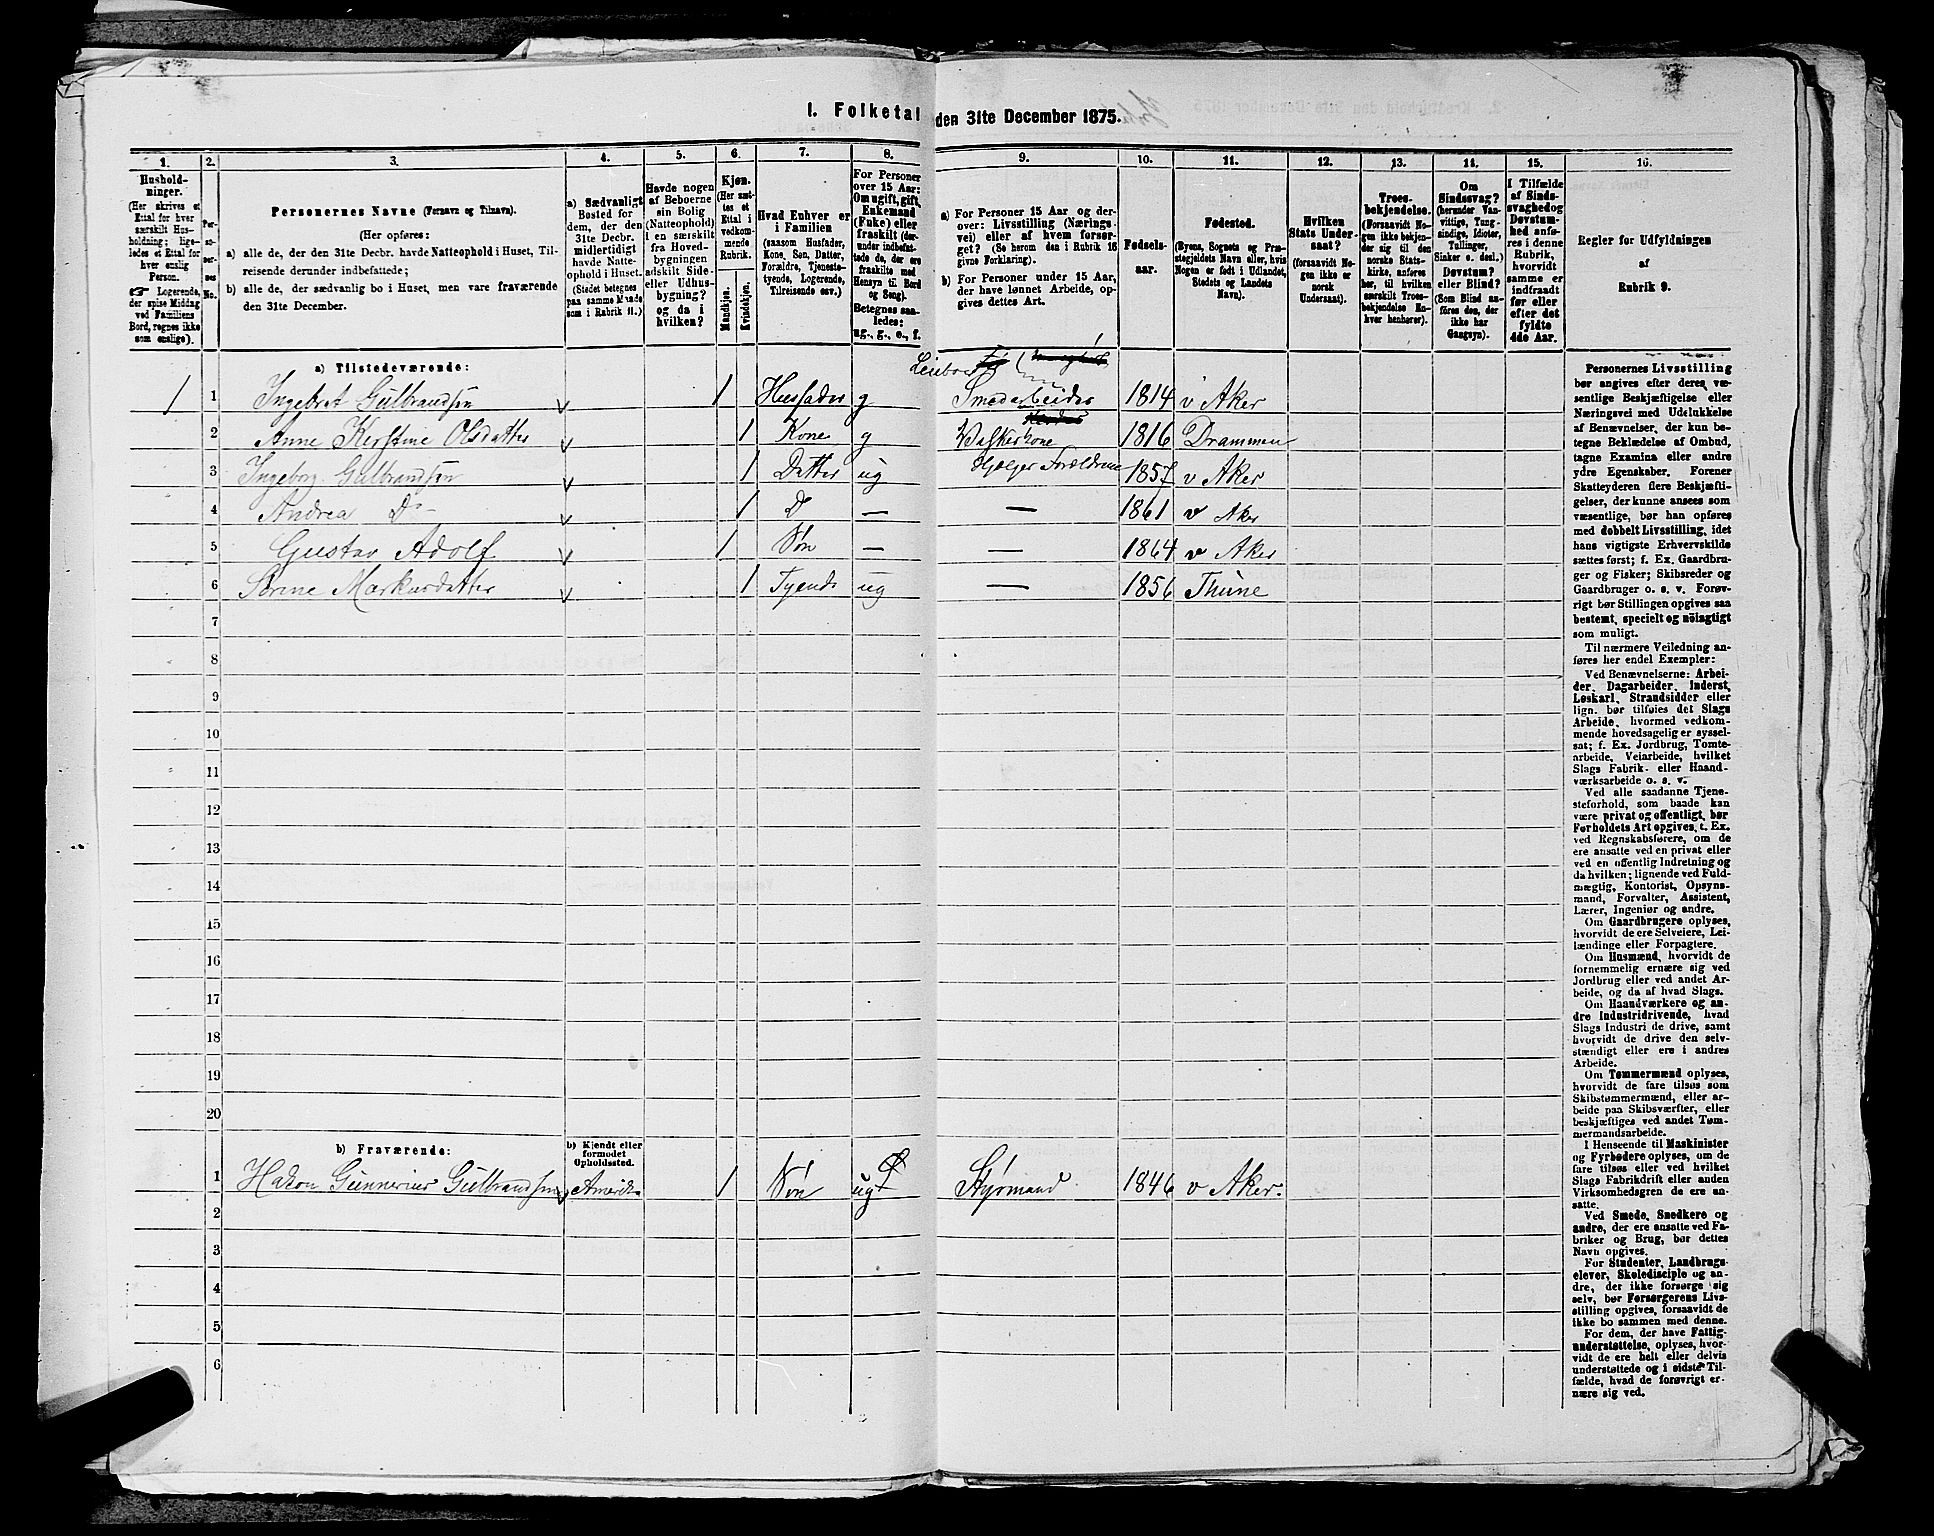 1. Folketal den 31te December 1875.
1. 2. 3. 4. 5. 6. 7. 8. 9. 10. 11. 12. 13. 14. 15. 16.
Hushold-
ninger.
(Her skrives et
Ettal for hver
særskilt Hus-
holdning; lige-
ledes et Ettal for
hver enslig
Person.
☞ Logerende,
der spise Middag
ved Familiens
Bord, regnes ikke
som enslige).
Per-
so-
ner-
nes
No.
Personernes Navne (Fornavn og Tilnavn).
(Her opføres:
a) alle de, der den 31te Decbr. havde Natteophold i Huset, Til-
reisende derunder indbefattede;
b) alle de, der sædvanlig bo i Huset, men vare fraværende
den 31te December.
a) Sædvanligt
Bosted for
dem, der den
31te Decbr.
midlertidigt
havde Natte-
ophold i Huset.
(Stedet betegnes
paa samme Maade
som i Rubrik 11.)
Havde nogen
af Beboerne
sin Bolig
(Natteophold)
i en særskilt
fra Hoved-
bygningen
adskilt Side-
eller Udhus-
bygning?
og da i
hvilken?
Kjøn.
(Her sæt-
tes et
Ettal i
vedkom-
mende
Rubrik.
Mandkjøn.
Kvindekjøn.
Hvad Enhver er
i Familien
(saasom Husfader,
Kone, Søn, Datter,
Forældre, Tjeneste-
tyende, Logerende,
Tilreisende osv.)
For Personer
over 15 Aar:
Om ugift, gift,
Enkemand
(Enke) eller
fraskilt (der-
under indbefat-
tede de, der ere
fraskilte med
Hensyn til Bord
og Seng).
Betegnes saa-
ledes:
ug., g., e., f.
a) For Personer 15 Aar og der-
over: Livsstilling (Nærings-
vei) eller af hvem forsør-
get? (Se herom den i Rubrik 16
givne Forklaring).
b) For Personer under 15 Aar,
der have lønnet Arbeide, op-
gives dettes Art.
Fødsels-
aar.
Fødested.
(Byens, Sognets og Præ-
stegjeldets Navn eller, hvis
Nogen er født i Udlandet,
Stedets og Landets
Navn).
Hvilken
Stats Under-
saat?
(forsaavidt No-
gen ikke er
norsk
Undersaat).
Troes-
bekjendelse.
(Forsaavidt No-
gen ikke bekjen-
der sig til den
norske Stats-
kirke, anføres
her, til hvilken
særskilt Troes-
bekjendelse En-
hver henhører).
Om
Sindssvag?
(herunder Van-
vittige, Tung-
sindige, Idioter,
Tullinger,
Sinker o. desl.)
Døvstum?
eller Blind?
(Som Blind an-
føres den, der
ikke har
Gangsyn).
I Tilfælde
af Sinds-
svaghed og
Døvstum-
hed anfø-
res i denne
Rubrik,
hvorvidt
samme er
indtraadt
før eller
efter det
fyldte
4de Aar.
Regler for Udfyldningen
af
Rubrik 9.
a) Tilstedeværende:
1 1 Ingebret Gulbrandsen 1 Husfader g Smedarbeider 1814 v Aker
2 Anne Kerstine Olsdatter 1 Kone g Vaskerkone 1816 Drammen
3 Ingeborg Gulbrandsen 1 Datter ug Hjælper Forældrene 1857 v Aker
4 Andrea D- 1 D — — 1861 v Aker
5 Gustav Adolf 1 Søn — — 1864 v Aker
6 Sørine Markusdatter 1 Tyende ug — 1856 Thune
7
8
9
10
11
12
13
14
15
16
17
18
19
20
b) Fraværende:
b) Kjendt eller
formodet
Opholdssted.
1 Hakon Gunnerius Gulbrandsen Amerika 1 Søn ug Styrmand 1846 v Aker.
2
3
4
5
6
Personernes Livsstilling
bør angives efter deres væ-
sentlige Beskjæftigelse eller
Næringsvei med Udelukkelse
af Benævnelser, der kun be-
tegne Beklædelse af Ombud,
tagne Examina eller andre
ydre Egenskaber. Forener
Skatteyderen flere Beskjæfti-
gelser, der kunne ansees som
væsentlige, bør han opføres
med dobbelt Livsstilling, idet
hans vigtigste Erhvervskilde
sættes først; f. Ex. Gaardbru-
ger og Fisker; Skibsreder og
Gaardbruger o. s. v. Forøv-
rigt bør Stillingen opgives saa
bestemt, specielt og nöiagtigt
som muligt.
Til nærmere Veiledning an-
føres her endel Exempler:
Ved Benævnelserne: Arbei-
der, Dagarbeider, Inderst,
Løskarl, Strandsidder eller
lign. bør tilføies det Slags
Arbeide, hvormed vedkom-
mende hovedsagelig er syssel-
sat; f. Ex. Jordbrug, Tomte-
arbeide, Veiarbeide, hvilket
Slags Fabrik- eller Haand-
værksarbeide o. s. v.
Ved alle saadanne Tjene-
steforhold, som baade kan
være privat og offentligt, bør
Forholdets Art opgives, t. Ex.
ved Regnskabsførere, om de
ere ansatte ved en privat eller
ved en offentlig Indretning og
da hvilken; lignende ved Fuld-
mægtig, Kontorist, Opsyns-
mand, Forvalter, Assistent,
Lærer, Ingeniør og andre.
Om Gaardbrugere oplyses,
hvorvidt de ere Selveiere, Lei-
lændinge eller Forpagtere.
Om Husmænd, hvorvidt de
fornemmelig ernære sig ved
Jordbrug eller ved andet Ar-
beide, og da af hvad Slags.
Om Haandværkere og an-
dre Industridrivende, hvad
Slags Industri de drive, samt
hvorvidt de drive den selv-
stændigt eller ere i andres
Arbeide.
Om Tømmermænd oplyses,
hvorvidt de fare tilsøs som
Skibstømmermænd, eller ar-
beide paa Skibsværfter, eller
beskjæftiges ved andet Tøm-
mermandsarbeide.
I Henseende til Maskinister
og Fyrbødere oplyses, om de
fare tilsøs eller ved hvilket
Slags Fabrikdrift eller anden
Virksomhedsgren de ere an-
satte.
Ved Smede, Snedkere og
andre, der ere ansatte ved Fa-
briker og Brug, bør dettes
Navn opgives.
For Studenter, Landbrugs-
elever, Skoledisciple og an-
dre, der ikke forsørge sig
selv, bør Forsørgerens Livs-
stilling opgives, forsaavidt de
ikke bo sammen med denne.
For dem, der have Fattig-
understøttelse, oplyses, hvor-
vidt de ere helt eller delvis
understøttede og i sidste Til-
fælde, hvad de forøvrigt er-
nære sig ved.